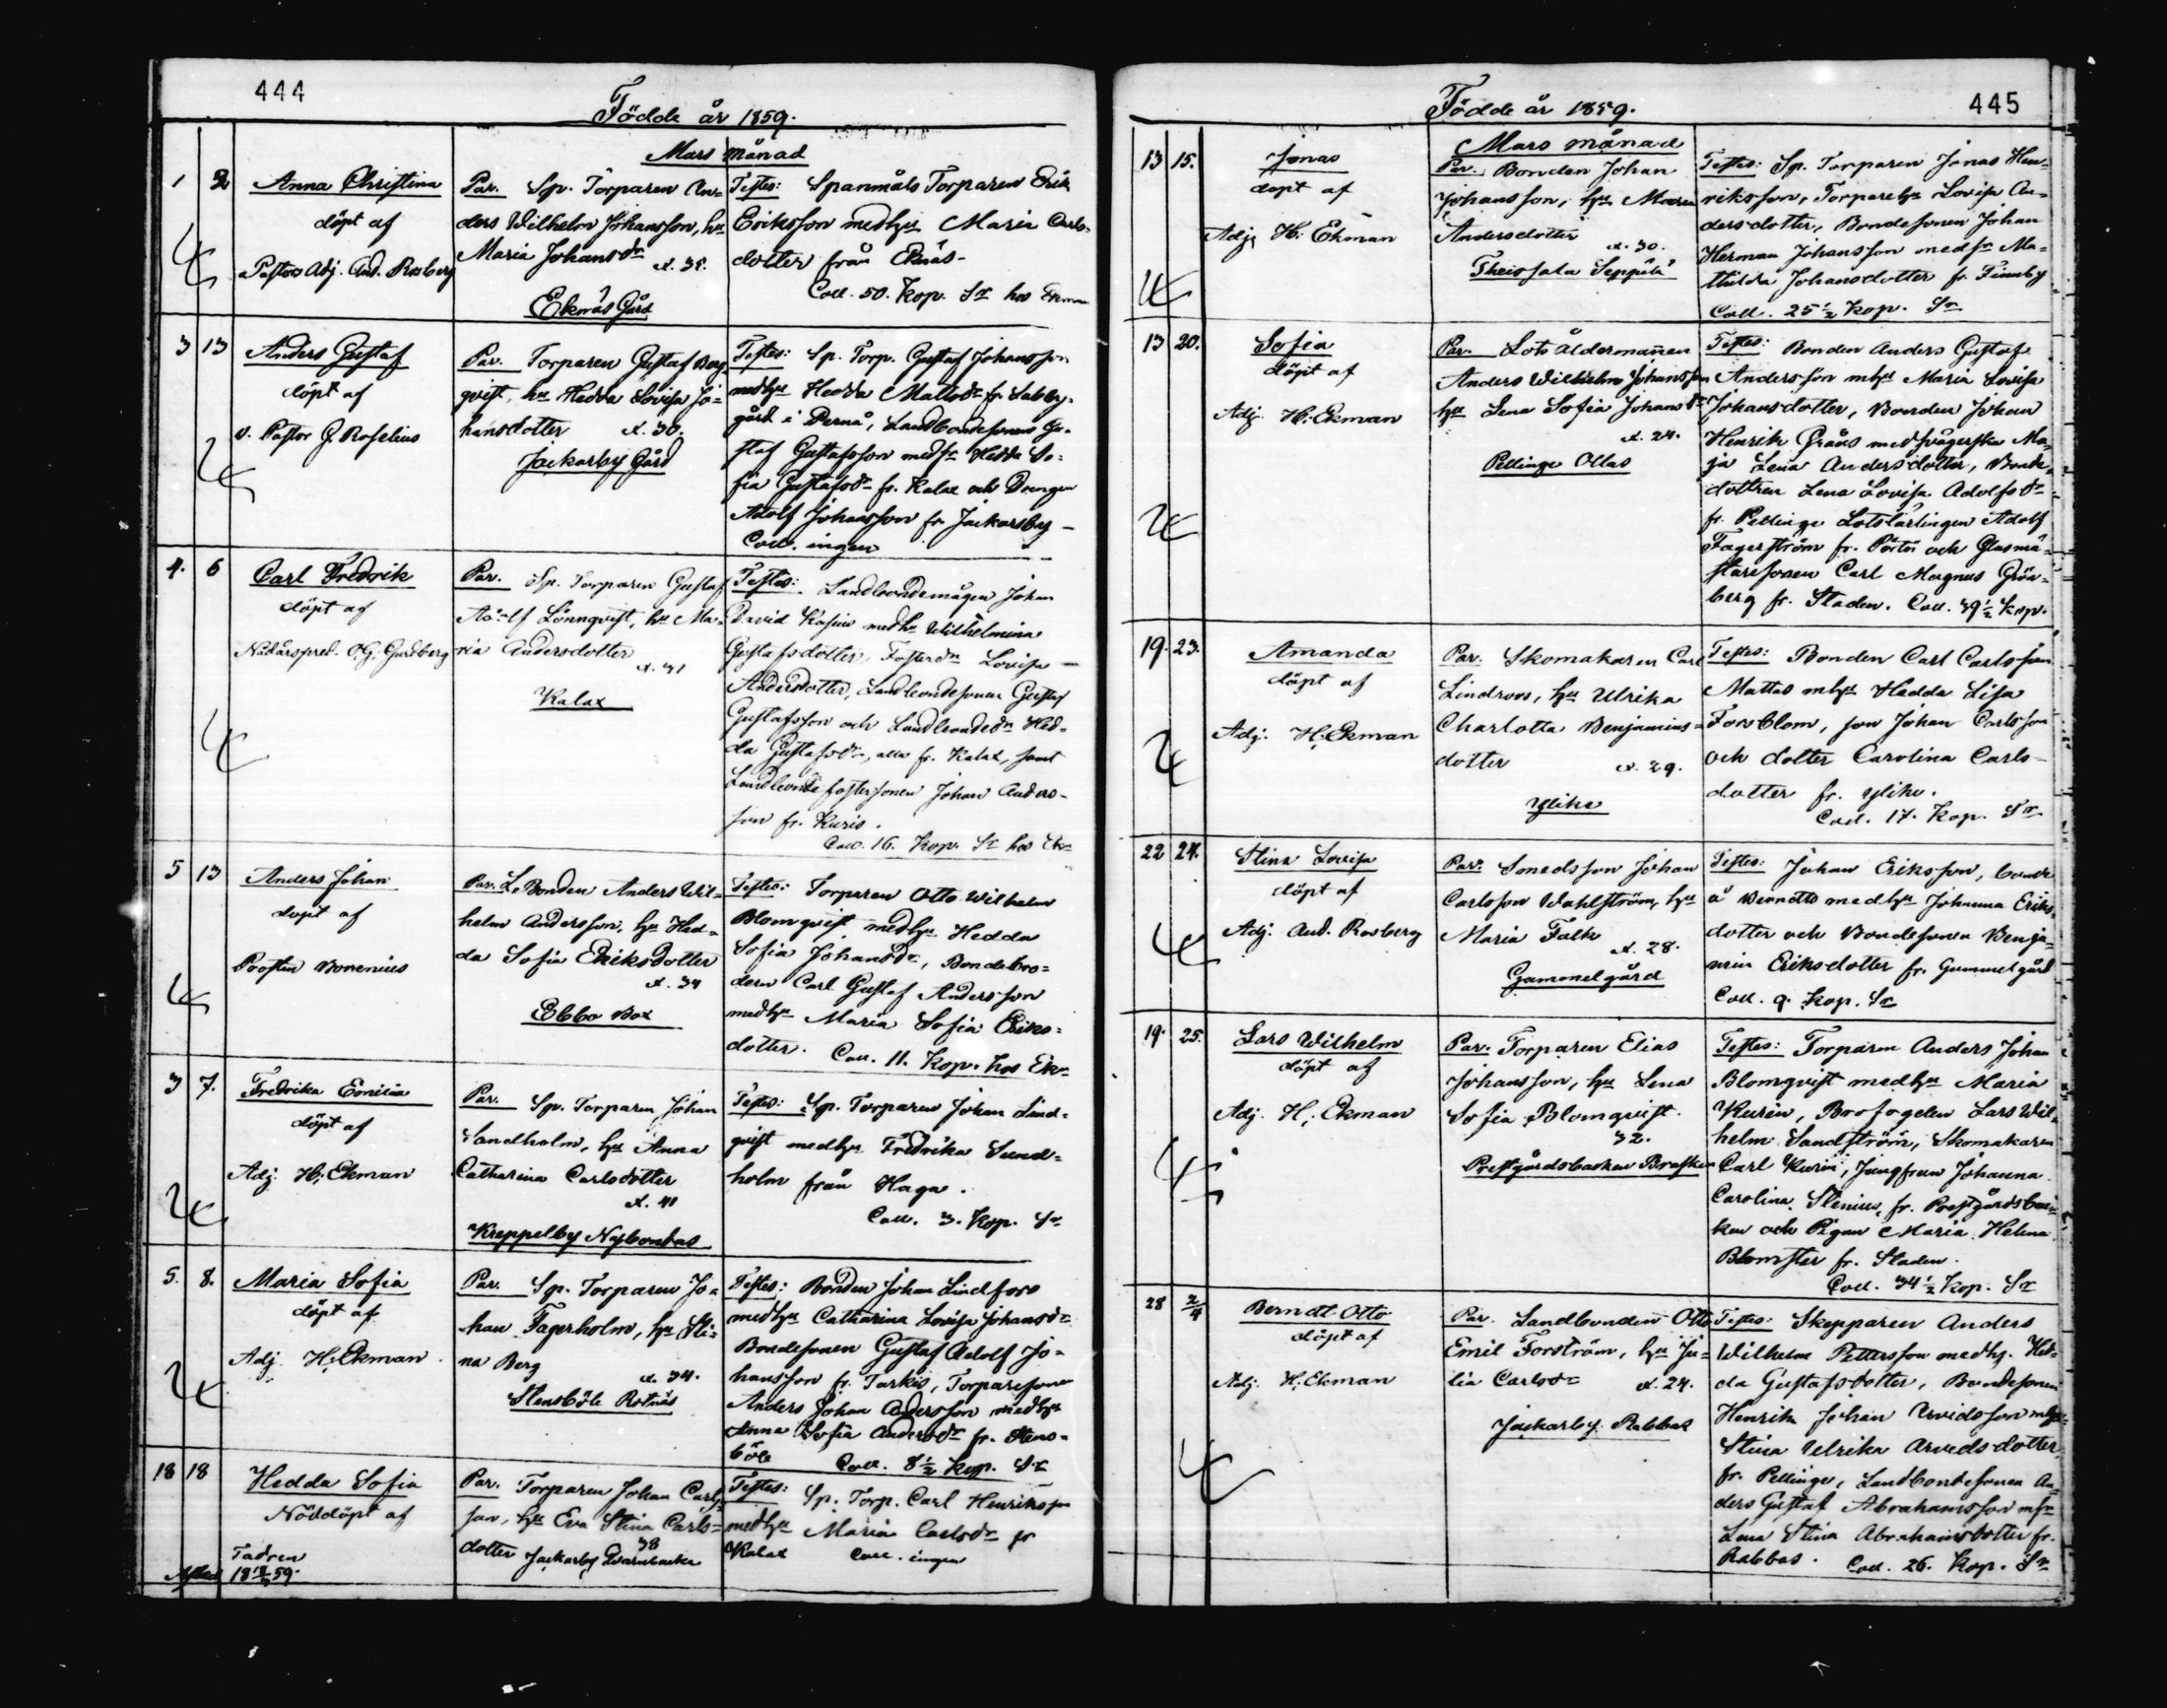 444
Födde år 1859.
Mars månad
1 2 Anna Christina
döpt af
Pastors Adj. And. Rosberg
Par. Sp. Torparen An=
ders Wilhelm Johansson, hu
Maria Johansdr
Eknäs Gård
Testes: Spanmåls Torparen Erik
Eriksson medhu Maria Carls=
dotter från Eknäs-
Coll. 50. Kop. Sr hos Ekman
3 13 Anders Gustaf
döpt af
v. Pastor G. Roselius
Par. Torparen Gustaf Berg=
qvist, hu Hedda Lovisa Jo=
hansdotter æ. 30.
Jackarby Gård
Testes: Sp. Torp. Gustaf Johansson
medhu Hedda Matsdr fr. Sabby=
gård i Pernå, Landbondesonen Gu=
staf Gustafsson medsr Hedda So=
fia Gustafsdr fr. Kalax och Drengen
Adolf Johansson fr. Jackarby -
Coll. ingen
4. 6 Carl Fredrik
döpt af
Nådårspred. O.G. Gardberg
Par. Sp. Torparen Gustaf
Adolf Lönnqvist, hu Ma=
ria Andersdotter
æ. 31
Kalax
Testes: Landbondemågen Johan
David medhu Wilhelmina
Gustafsdotter, Fosterdr Lovisa
Andersdotter, Landbondesonen Gustaf
Gustafsson och Landbondedr Hed=
da Gustafsdr, alla fr. Kalax, samt
Landbondefostersonen Johan Anders=
son fr. Kuris.
Coll. 16. Kop. Sr hos Ekn
5 13 Anders Johan
döpt af
Prosten Borenius
Par. L.Bonden Anders Wil=
helm Andersson, hu Hed=
da Sofia Eriksdotter
æ. 34
Ebbo Box
Testes: Torparen Otto Wilhelm
Blomqvist medhu Hedda
Sofia Johansdr, Bondebro=
dern Carl Gustaf Andersson
medhu Maria Sofia Eriks=
dotter. Coll. 11. Kop. hos Ekn
3 7. Fredrika Emilia
döpt af
Adj. H. Ekman
Par. Sp. Torparen Johan
Sandholm, hu Anna
Catharina Carlsdotter
æ. 41
Kreppelby Nybondas
Testes: Sp. Torparen Johan Lind=
qvist medhu Fredrika Sund=
holm från Haga.
Coll. 3. Kop. Sr
5. 8. Maria Sofia
döpt af
Adj. H. Ekman
Par. Sp. Torparen Jo=
han Fagerholm, hu Sti=
na Berg
æ. 34.
Stensböle Rotnäs
Testes: Bonden Johan Lindfors
medhu Catharina Lovisa Johansdr
Bondesonen Gustaf Adolf Jo=
hansson fr. Tarkis, Torparesonen
Anders Johan Andersson medhu
Anna Sofia Andersdr fr. Stens=
böle Coll. 8½ Kop. Sr
18 18 Hedda Sofia
Nöddöpt af
Fadren
Par. Torparen Johan Carls=
son, hu Eva Stina Carls=
dotter 38
Jackarby Qvarnbacka
Testes: Sp. Torp. Carl Henriksson
medhu Maria Carlsdr fr
Kalax Coll. ingen
445
Födde år 1859.
Mars månad
13 15. Jonas
döpt af
Adj. H. Ekman
Par. Bonden Johan
Johansson, hu Maria
Andersdotter
æ. 30.
Theissala Seppälä
Testes: Sp. Torparen Jonas Hen=
riksson, Torparehu Lovisa An=
dersdotter, Bondesonen Johan
Herman Johansson medsr Ma=
thilda Johansdotter fr. Finnby
Coll. 25½ Kop. Sr
13 20. Sofia
döpt af
Adj. H. Ekman
Par. Lots Åldermannen
Anders Wilhelm Johansson
hu Lena Sofia Johansdr
æ. 24.
Pellinge Ollas
Testes: Bonden Anders Gustaf
Andersson mhu Maria Lovisa
Johansdotter, Bonden Johan
Henrik Gräns medsvägerska Ma=
ja Lena Andersdotter, Bonde=
dottren Lena Lovisa Adolfsdr
fr. Pellinge Lotslärlingen Adolf
Fagerström fr. Pörtö och Glasmä=
staresonen Carl Magnus Grön=
berg fr. Staden. Coll. 39½ Kop.
19. 23. Amanda
döpt af
Adj. H. Ekman
Par. Skomakaren Carl
Lindroos, hu Ulrika
Charlotta Benjamins=
dotter æ. 29.
Ylike
Testes: Bonden Carl Carlsson
Mattas mhu Hedda Lisa
Forsblom, son Johan Carlsson
och dotter Carolina Carls=
dotter fr. Ylike.
Coll. 17. Kop. Sr
22 24. Stina Lovisa
döpt af
Adj. And. Rosberg
Par. Johan
Carlsson Wahlström, hu
Maria Falk
æ. 28.
Gammelgård
Testes: Johan Eriksson, bonde
å medhu Johanna Eriks=
dotter och Bondesonen Benja=
min Eriksdotter fr. Gammelgård
Coll. 9. Kop. Sr
19. 25. Lars Wilhelm
döpt af
Adj. H. Ekman
Par. Torparen Elias
Johansson, hu Lena
Sofia Blomqvist.
32.
Prestgårdsbacken Brasken
Testes: Torparen Anders Johan
Blomqvist medhu Maria
Kurin, Brofogden Lars Wil=
helm Sandström, Skomakaren
Carl Kurin, Jungfrun Johanna
Carolina Stenius, fr. Prestgårdsbac=
ken och Pigan Maria Helena
Blomster fr. Staden.
Coll. 34½ Kop. Sr
28 2/4 Berndt Otto
döpt af
Adj. H. Ekman
Par. Landbonden Otto
Emil Forström, hu Ju=
lia Carlsdr æ. 24.
Jackarby Rabbas
Testes: Skepparen Anders
Wilhelm Pettersson medhu Hed=
da Gustafsdotter, Bondesonen
Henrik Johan Arvidsson mhu
Stina Ulrika Arvedsdotter
fr. Pellinge, Landbondesonen An=
ders Gustaf Abrahamsson msr
Lena Stina Abrahamsdotter fr.
Rabbas. Coll. 26. Kop. Sr